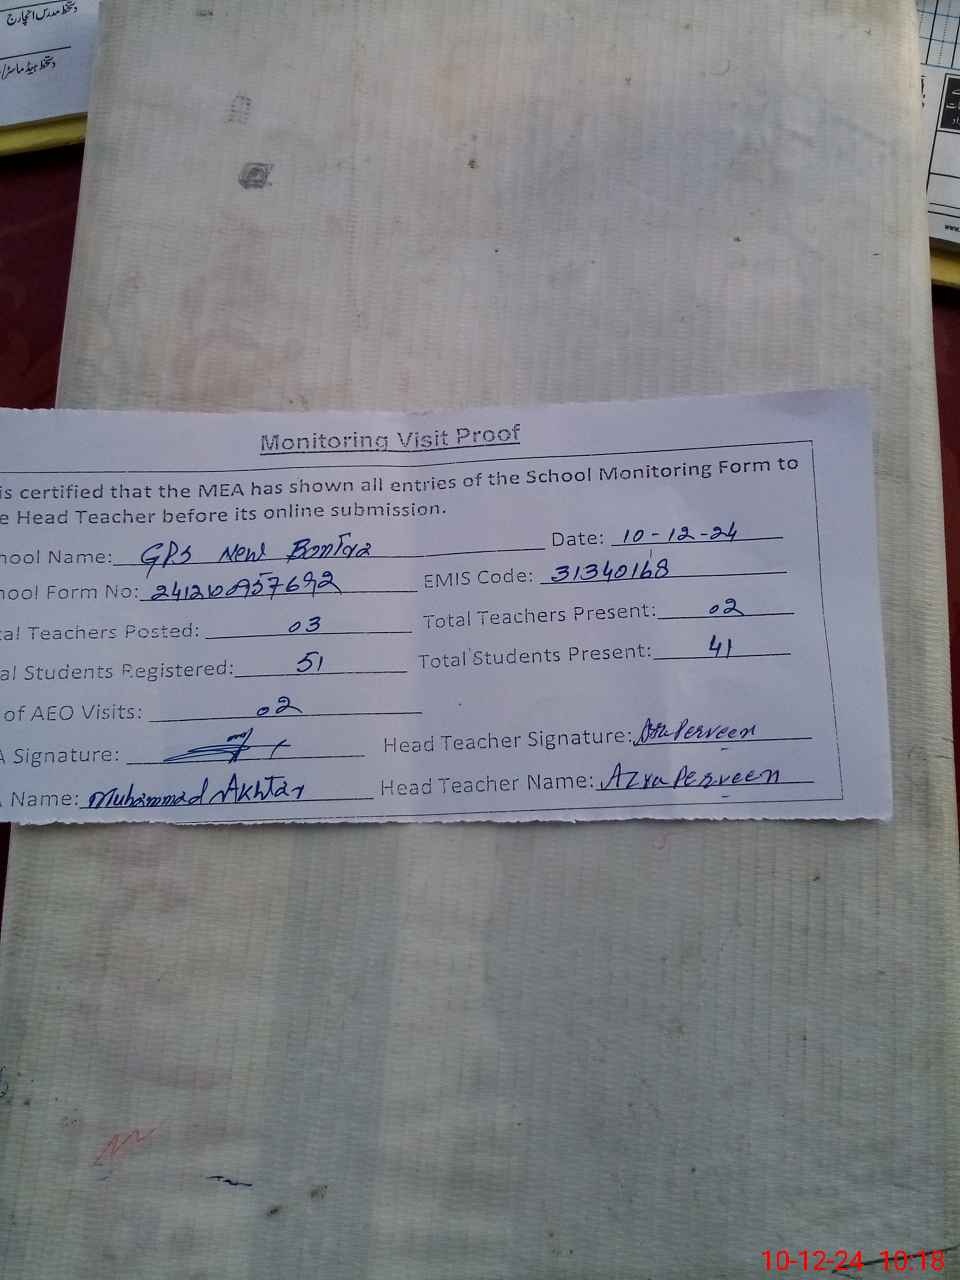 دستخط مدرس انچارج
دستخط ہیڈ ماسٹر/
www.
Monitoring Visit Proof
is certified that the MEA has shown all entries of the School Monitoring Form to
e Head Teacher before its online submission.
hool Name: GPS New Date: 10-12-24
hool Form No: EMIS Code: 31340168
tal Teachers Posted: 03 Total Teachers Present: 02
al Students Registered: 51 Total Students Present: 41
of AEO Visits: 02
A Signature: Head Teacher Signature: Perveen
Name: Muhammad Akhtar Head Teacher Name: Azra Perveen
10-12-24 10:18